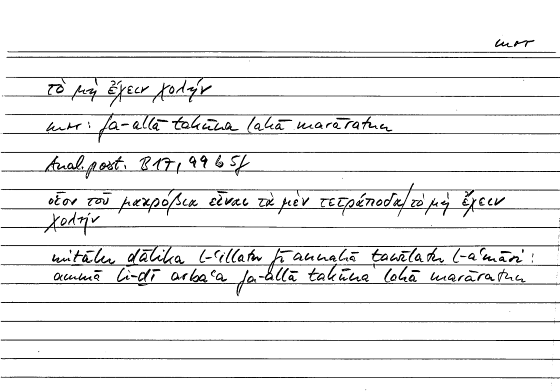 mrr
τὸ μὴ ἔχειν χολήν
mrr: fa-allā takūna lahā marāratun
Anal. post. B 17, 99 b 5f
οἷον τοῦ μακρόβια εἶναι τὰ μὲν τετράποδα/τὸ μὴ ἔχειν
χολήν
miṯālu ḏālika l-ʿillatu fī annahā ṭawīlatu l-aʿmāri:
ammā li-ḏī arbaʿa fa-allā takūna lahā marāratun